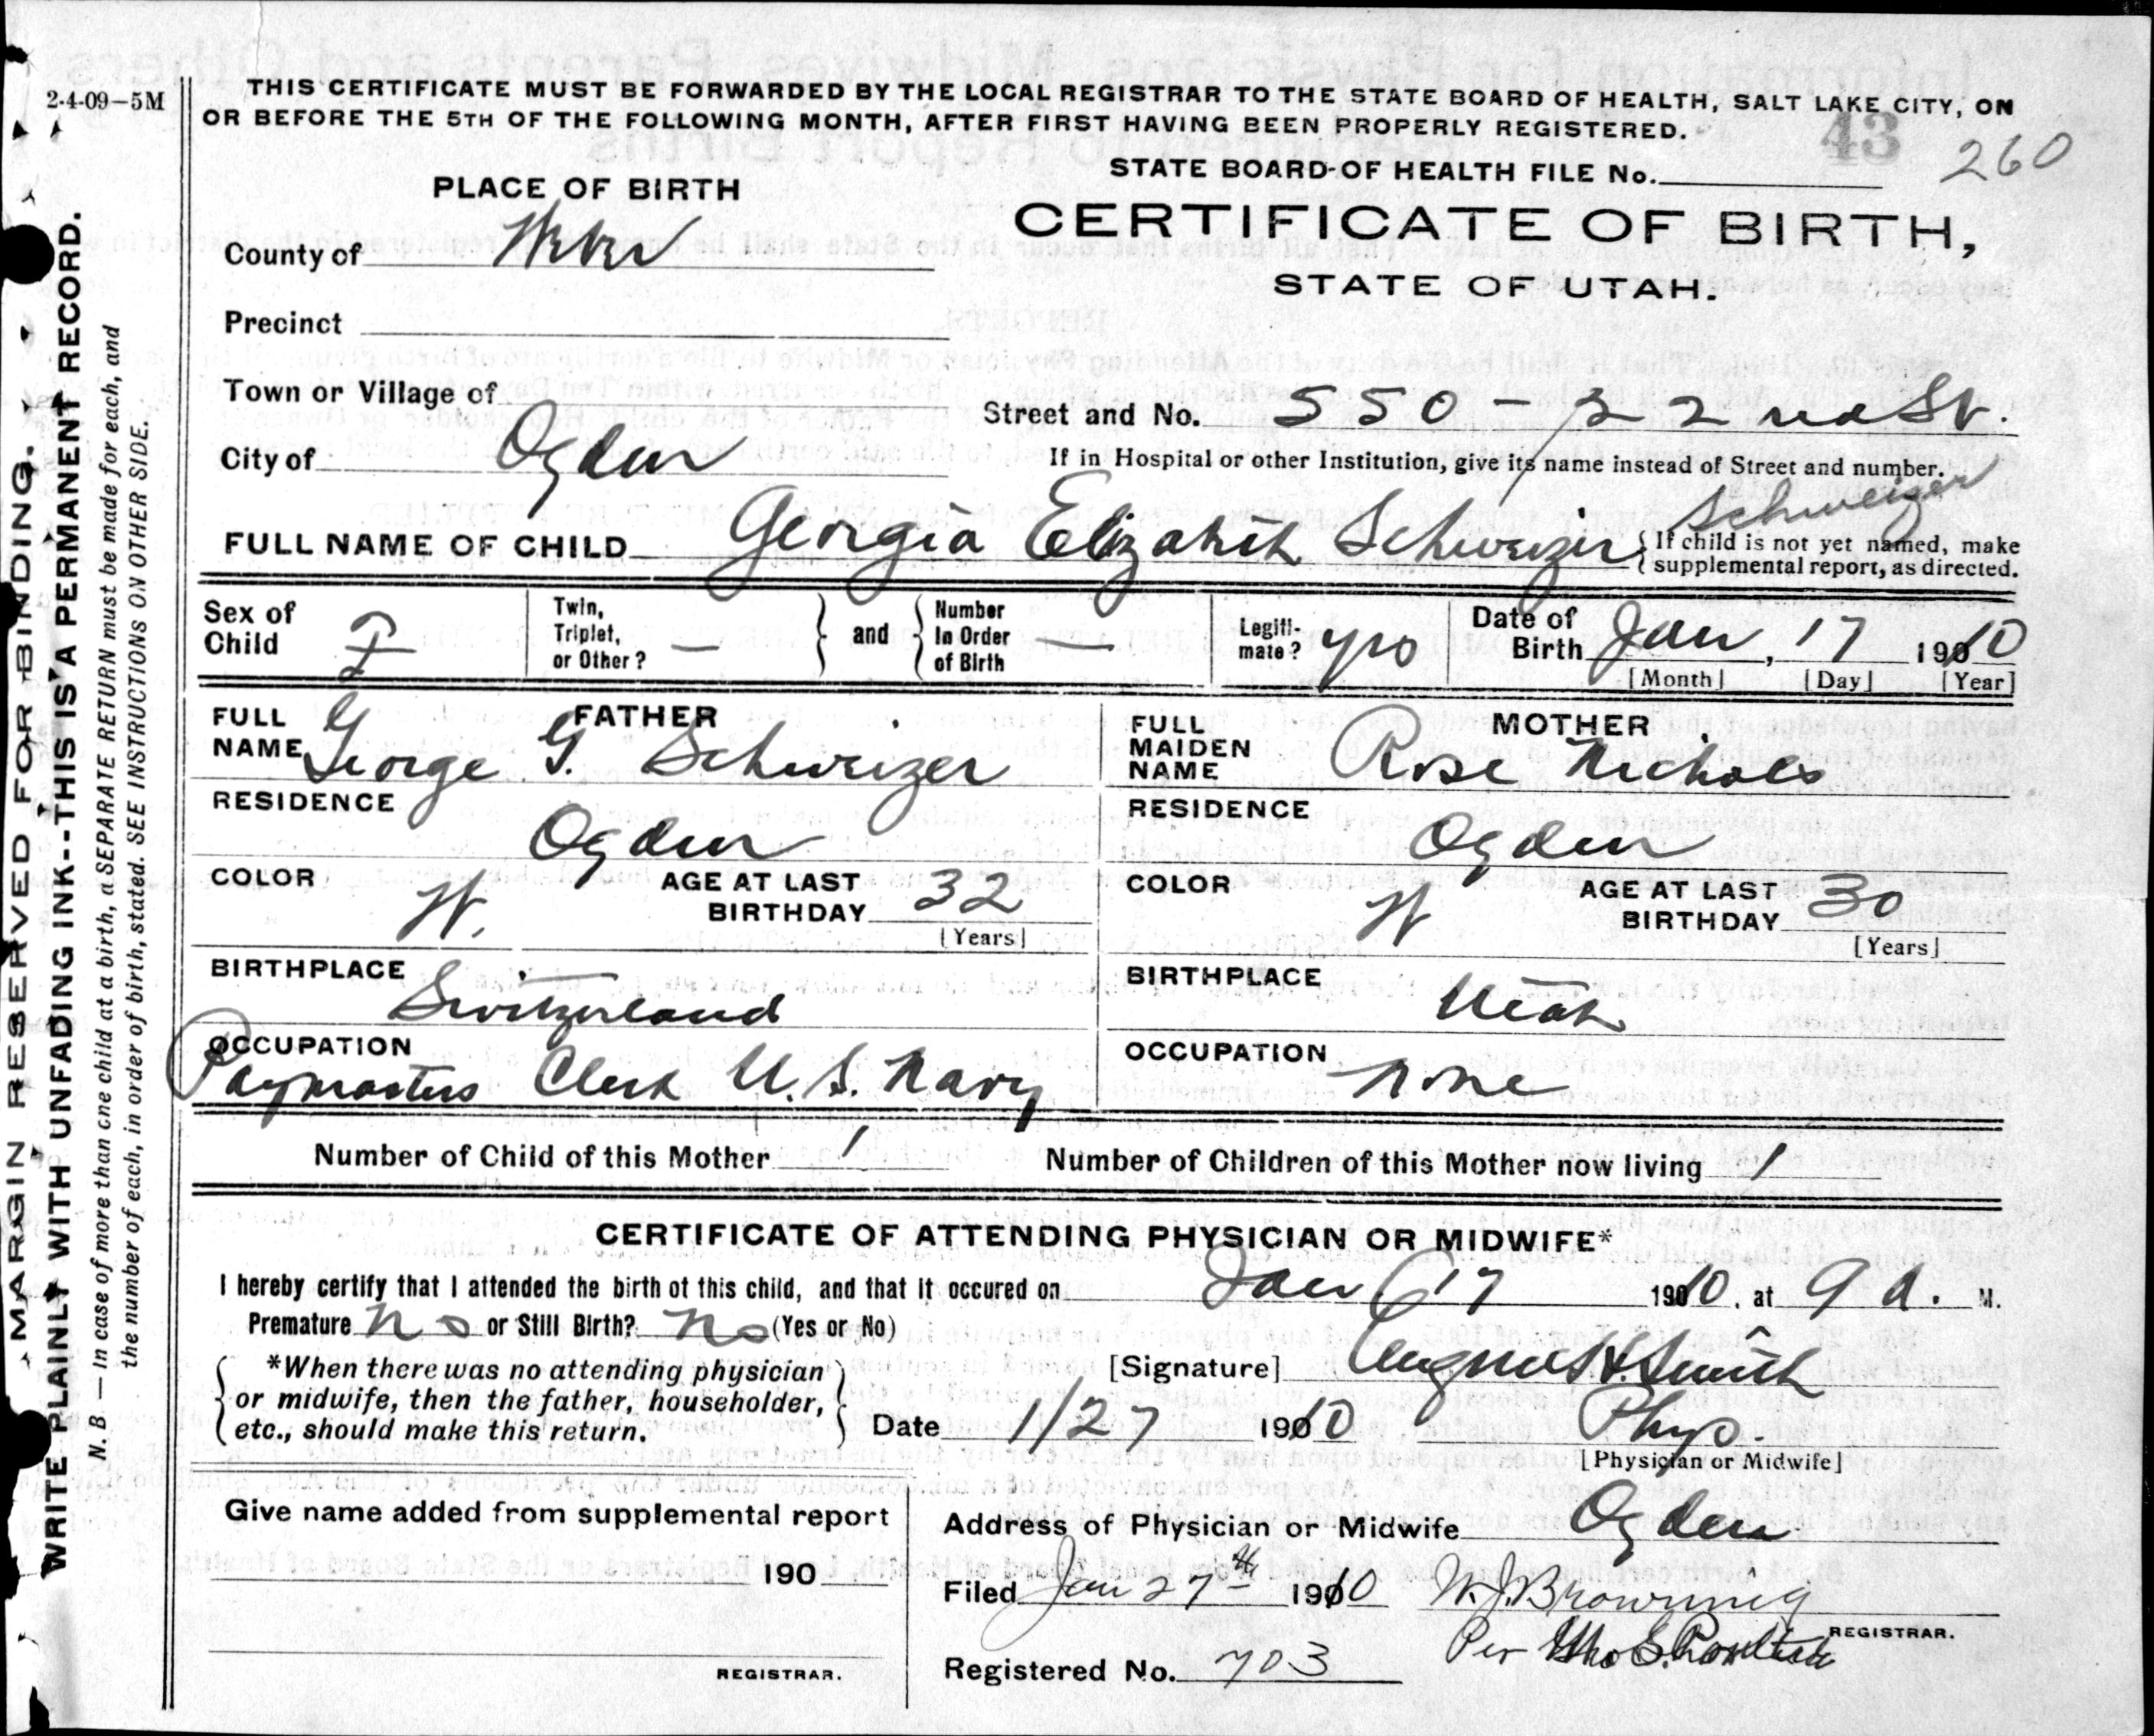 2-4-09–5M
THIS CERTIFICATE MUST BE FORWARDED BY THE LOCAL REGISTRAR TO THE STATE BOARD OF HEALTH, SALT LAKE CITY, ON
OR BEFORE THE 5TH OF THE FOLLOWING MONTH, AFTER FIRST HAVING BEEN PROPERLY REGISTERED.
43
260
STATE BOARD OF HEALTH FILE No.
PLACE OF BIRTH
CERTIFICATE OF BIRTH,
STATE OF UTAH.
County of Weber
Precinct
Town or Village of
Street and No. 550 - 22nd St.
City of Ogden
If in Hospital or other Institution, give its name instead of Street and number.
Schweizer
FULL NAME OF CHILD Georgia Elizabeth Schweizer
If child is not yet named, make
supplemental report, as directed.
Sex of Child F
Twin, Triplet, or Other? —
and
Number In Order of Birth —
Legiti-mate? yes
Date of Birth Jan, 17 1910
[Month] [Day] [Year]
FATHER
FULL NAME George G. Schweizer
RESIDENCE
Ogden
COLOR W.
AGE AT LAST BIRTHDAY 32
[Years]
BIRTHPLACE
Switzerland
OCCUPATION
Paymasters Clerk U.S. Navy
MOTHER
FULL MAIDEN NAME Rose Nichols
RESIDENCE
Ogden
COLOR W
AGE AT LAST BIRTHDAY 30
[Years]
BIRTHPLACE
Utah
OCCUPATION
None
Number of Child of this Mother 1
Number of Children of this Mother now living 1
CERTIFICATE OF ATTENDING PHYSICIAN OR MIDWIFE*
I hereby certify that I attended the birth of this child, and that it occured on Jan 17 1910, at 9 a. M.
Premature No or Still Birth? No (Yes or No)
*When there was no attending physician
or midwife, then the father, householder,
etc., should make this return.
[Signature] H. Smith
Date 1/27 1910
Phys.
[Physician or Midwife]
Give name added from supplemental report
190
REGISTRAR.
Address of Physician or Midwife Ogden
Filed Jan 27th 1910 W.J. Browning
REGISTRAR.
Per
Registered No. 703
MARGIN RESERVED FOR BINDING.
WRITE PLAINLY WITH UNFADING INK--THIS IS A PERMANENT RECORD.
N. B — In case of more than one child at a birth, a SEPARATE RETURN must be made for each, and
the number of each, in order of birth, stated. SEE INSTRUCTIONS ON OTHER SIDE.